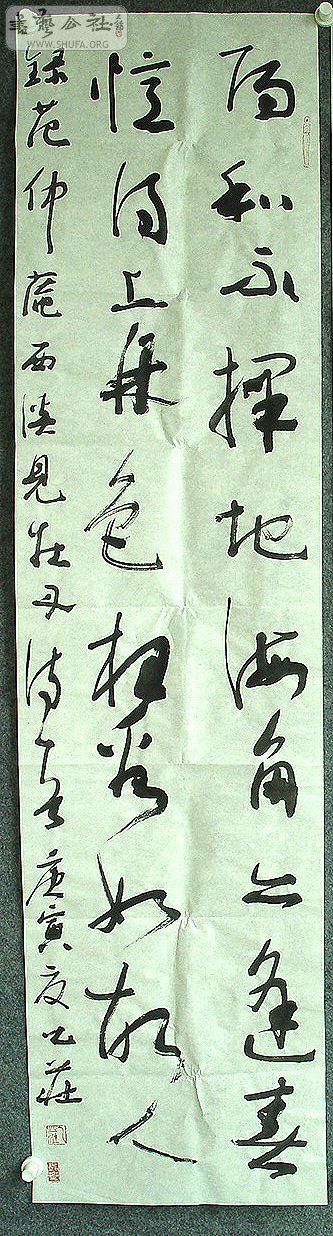 書藝公社
WWW.SHUFA.ORG
陽和不擇地海角亦逢春
憶得上林色相看如故人
錄范仲庵西溪見牡丹詩一首庚寅夏莊